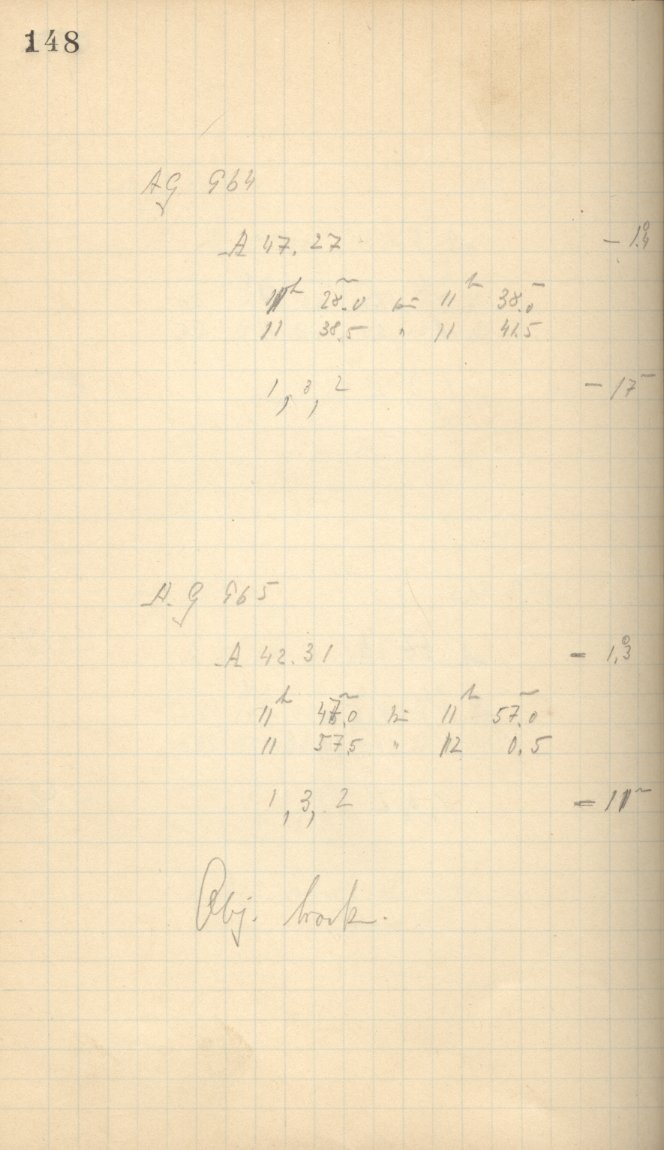 148
AG 964
A 47.27 - 1°.4
11h 28m.0 bis 11h 38m.0
11 38.5 " 11 41.5
1, 3, 2 - 17m
A.G 965
A 42.31 - 1°.3
11h 47m.0 bis 11h 57m.0
11 57.5 " 12 0.5
1, 3, 2 - 11m
Obj. trock.